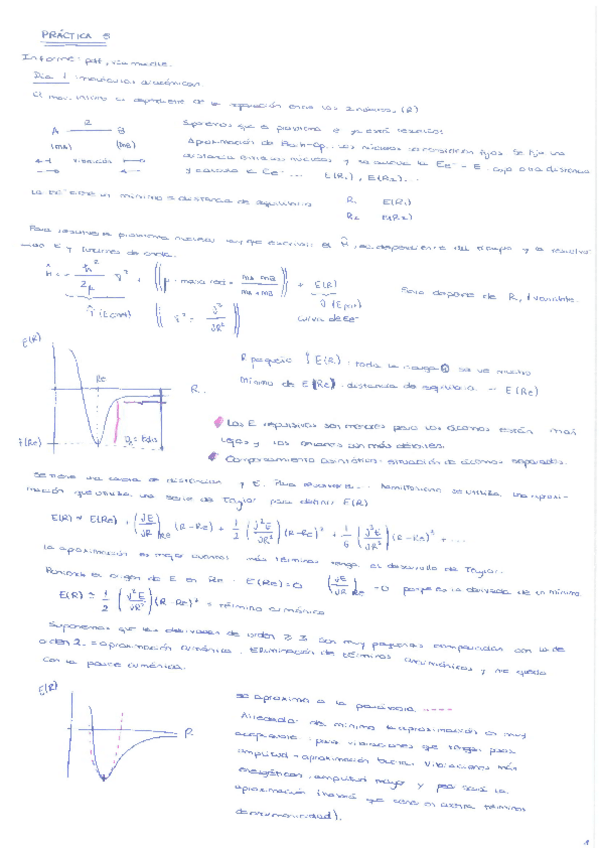 PRÁCTICA 5
Informe: pdf, vía moodle.
Día 1 : moléculas diatómicas.
de la separación entre los 2 núcleos, (R)
A — B Sabemos que el problema e- ya está resuelto.
(mA) (mB) Aproximación de Born-Op. Los núcleos se consideran fijos. Se fija una
vibración distancia entre los núcleos y se calcula la Ee- = E. Cojo otra distancia
y calculo la Ee- ... E(R1), E(R2)...
La mín = distancia de equilibrio R1 E(R1)
R2 E(R2)
Para resolver el problema nuclear hay que escribir el Ĥ, independiente del tiempo y lo resolve
E y funciones de onda.
Ĥ = - ħ² / 2μ ∇² , μ = masa red = mA mB / mA + mB + E(R)
T̂ (Ecinét) ∇² = d² / dR² V̂ (Epot)
Solo depende de R, 1 variable.
E(R)
Re
R.
E(Re)
R pequeño E(R)
Mínimo de E (Re) = distancia de equilibrio → E(Re)
Las E repulsivas son menores para los átomos están más
lejos y las uniones son más débiles.
Comportamiento asintótico = situación de átomos separados.
se utiliza una aproxi-
mación que utiliza una serie de Taylor para definir E(R)
E(R) = E(Re) + (dE/dR)Re (R-Re) + 1/2 (d²E/dR²) (R-Re)² + 1/6 (R-Re)³ + ...
La aproximación es mejor cuantos más términos tenga el desarrollo de Taylor.
Poniendo el origen de E en Re : E(Re) = 0 (dE/dR)Re = 0 porque es la derivada de un mínimo
E(R) ≈ 1/2 (d²E/dR²) (R-Re)² = término armónico
Suponemos que las derivadas de orden ≥ 3 son muy pequeñas comparadas con la de
orden 2. = aproximación armónica. Eliminación de términos anarmónicos y me quedo
con la parte armónica.
E(R)
R.
Se aproxima a la parábola ----
Alrededor del mínimo la aproximación es muy
aceptable : para vibraciones que tengan poca
amplitud = aproximación buena. Vibraciones más
energéticas, amplitud mayor y peor será la
aproximación (habrá que tener en cuenta términos
de anarmonicidad).
1